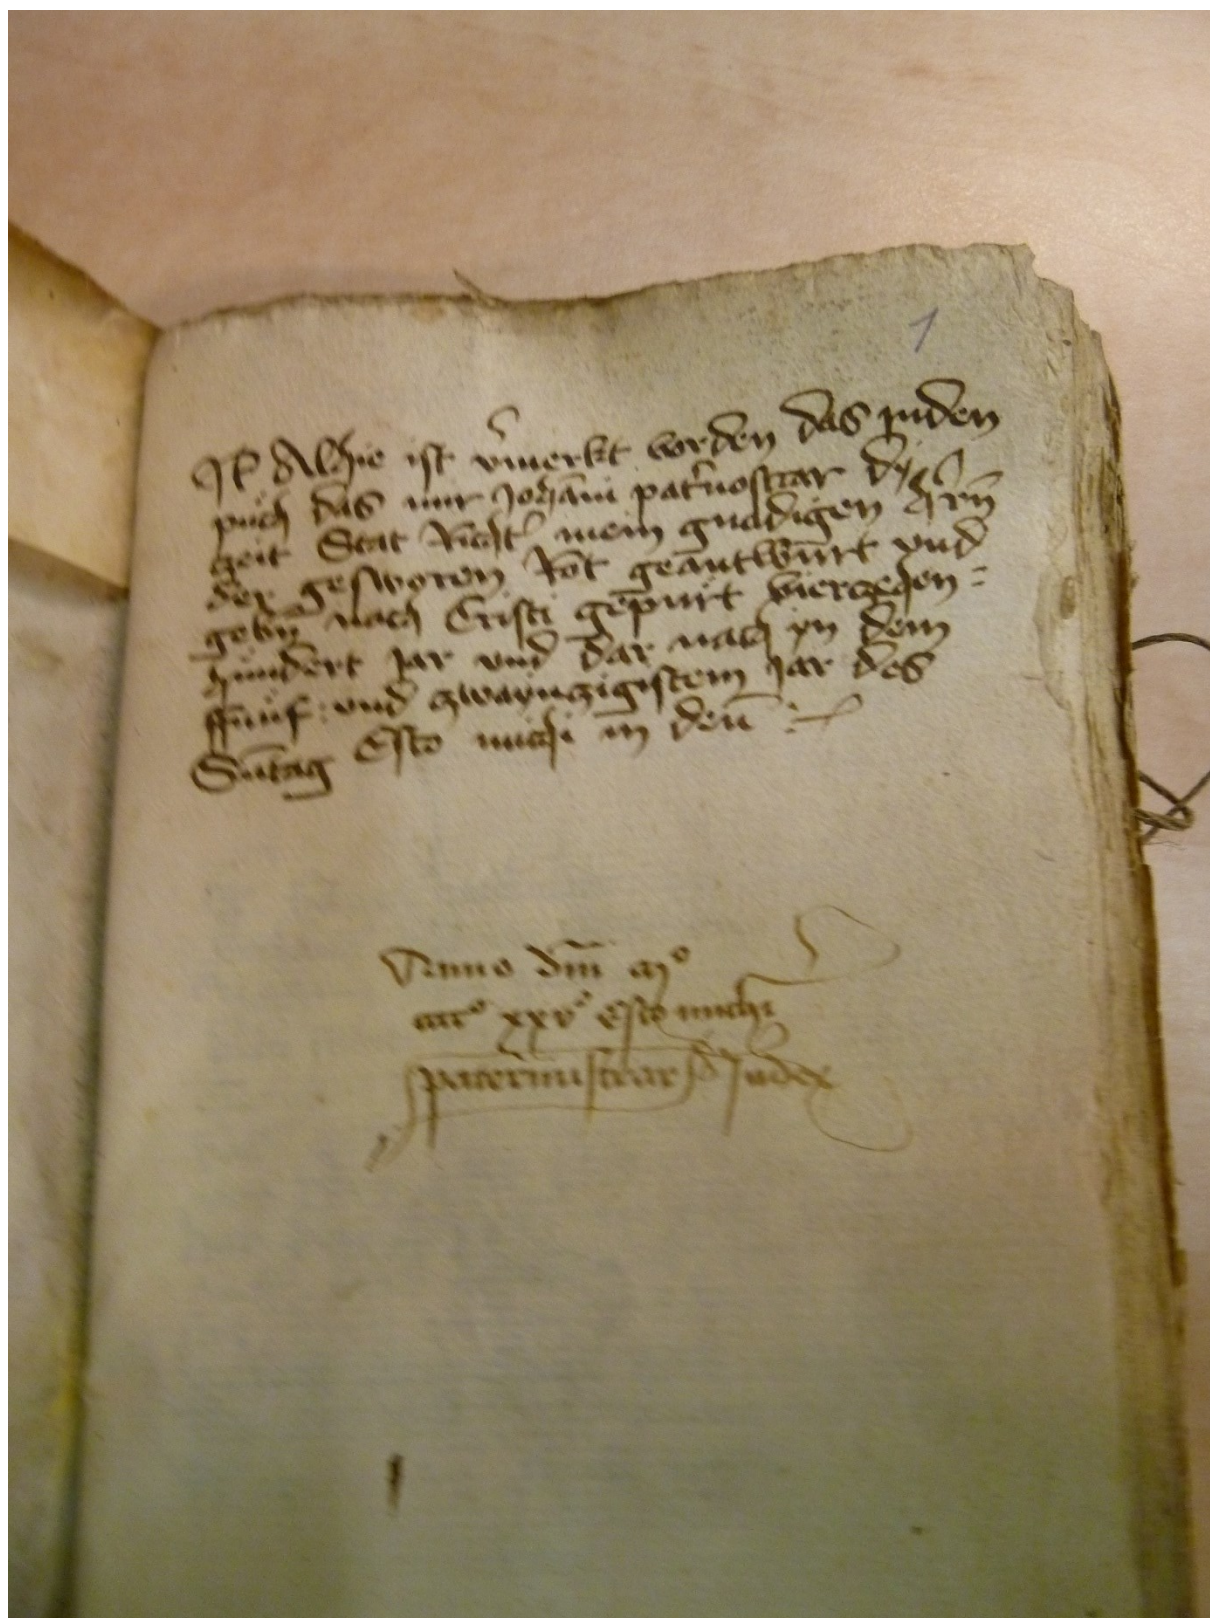 1
It Alhie ist v̄merkt worden das juden
puch das mir Johāni pat̄nostrar dy
zeit Stat Richt̄ mein gnadigen h̄rn̄
der gesworen Rot geantwūrt vnd
gebn̄ nach Cristi gepurt vierzehen =
hundert jar vnd dar nach yn dem
ffunf : vnd zwaynzigistem jar des
Sūntag Esto michi in deū :
Anno dm̄ mº
cccº xxvº Esto michi
paternustrar Judex